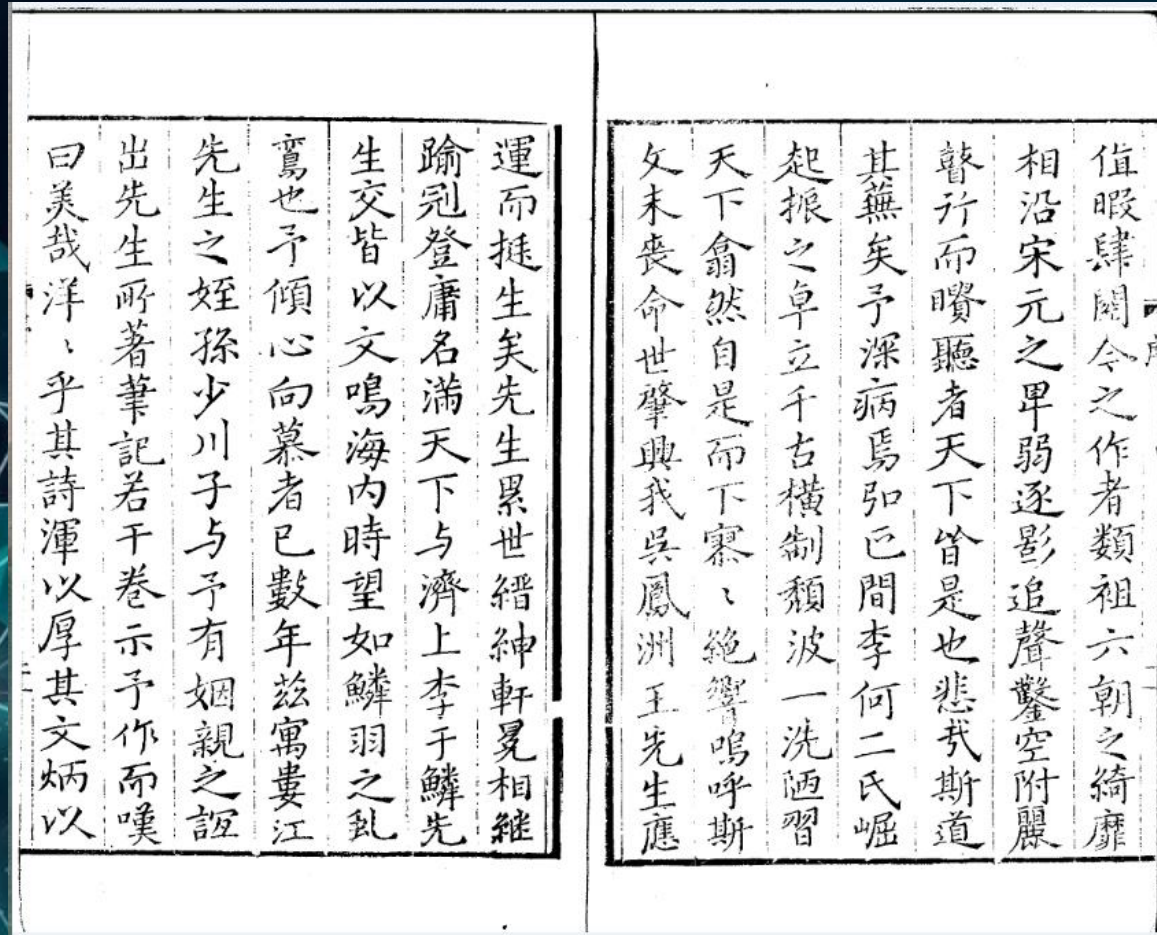 值暇肆閱今之作者類祖六朝之綺靡
相沿宋元之卑弱逐影追聲鑿空附麗
瞽行而瞶聽者天下皆是也悲哉斯道
其蕪矣予深病焉弘正間李何二氏崛
起振之卓立千古橫制頹波一洗陋習
天下翕然自是而下寥〻絕響嗚呼斯
文未喪命世肇興我吳鳳洲王先生應
運而挺生矣先生累世縉紳軒冕相継
踰冠登庸名滿天下与濟上李于鱗先
生交皆以文鳴海內時望如鱗羽之虬
鸞也予傾心向慕者已數年茲寓婁江
先生之姪孫少川子与予有姻親之誼
出先生所著筆記若干卷示予作而嘆
曰美哉洋〻乎其詩渾以厚其文炳以